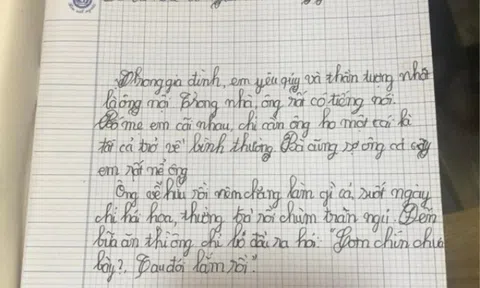 Trong gia đình, em yêu quý và thần tượng nhất
là ông nội. Trong nhà, ông rất có tiếng nói.
Bố mẹ em cãi nhau, chỉ cần ông ho một cái là
tất cả trở về bình thường. Bố cũng sợ ông cả
em rất nể ông
Ông về hưu rồi nên chẳng làm gì cả, suốt ngày
chỉ hái hoa, thường ra rồi chùm trăn ngủ. Đến
bữa ăn thì ông chỉ ló đầu ra hỏi: "Cơm chín chưa
bay?, Tau đói lắm rồi".